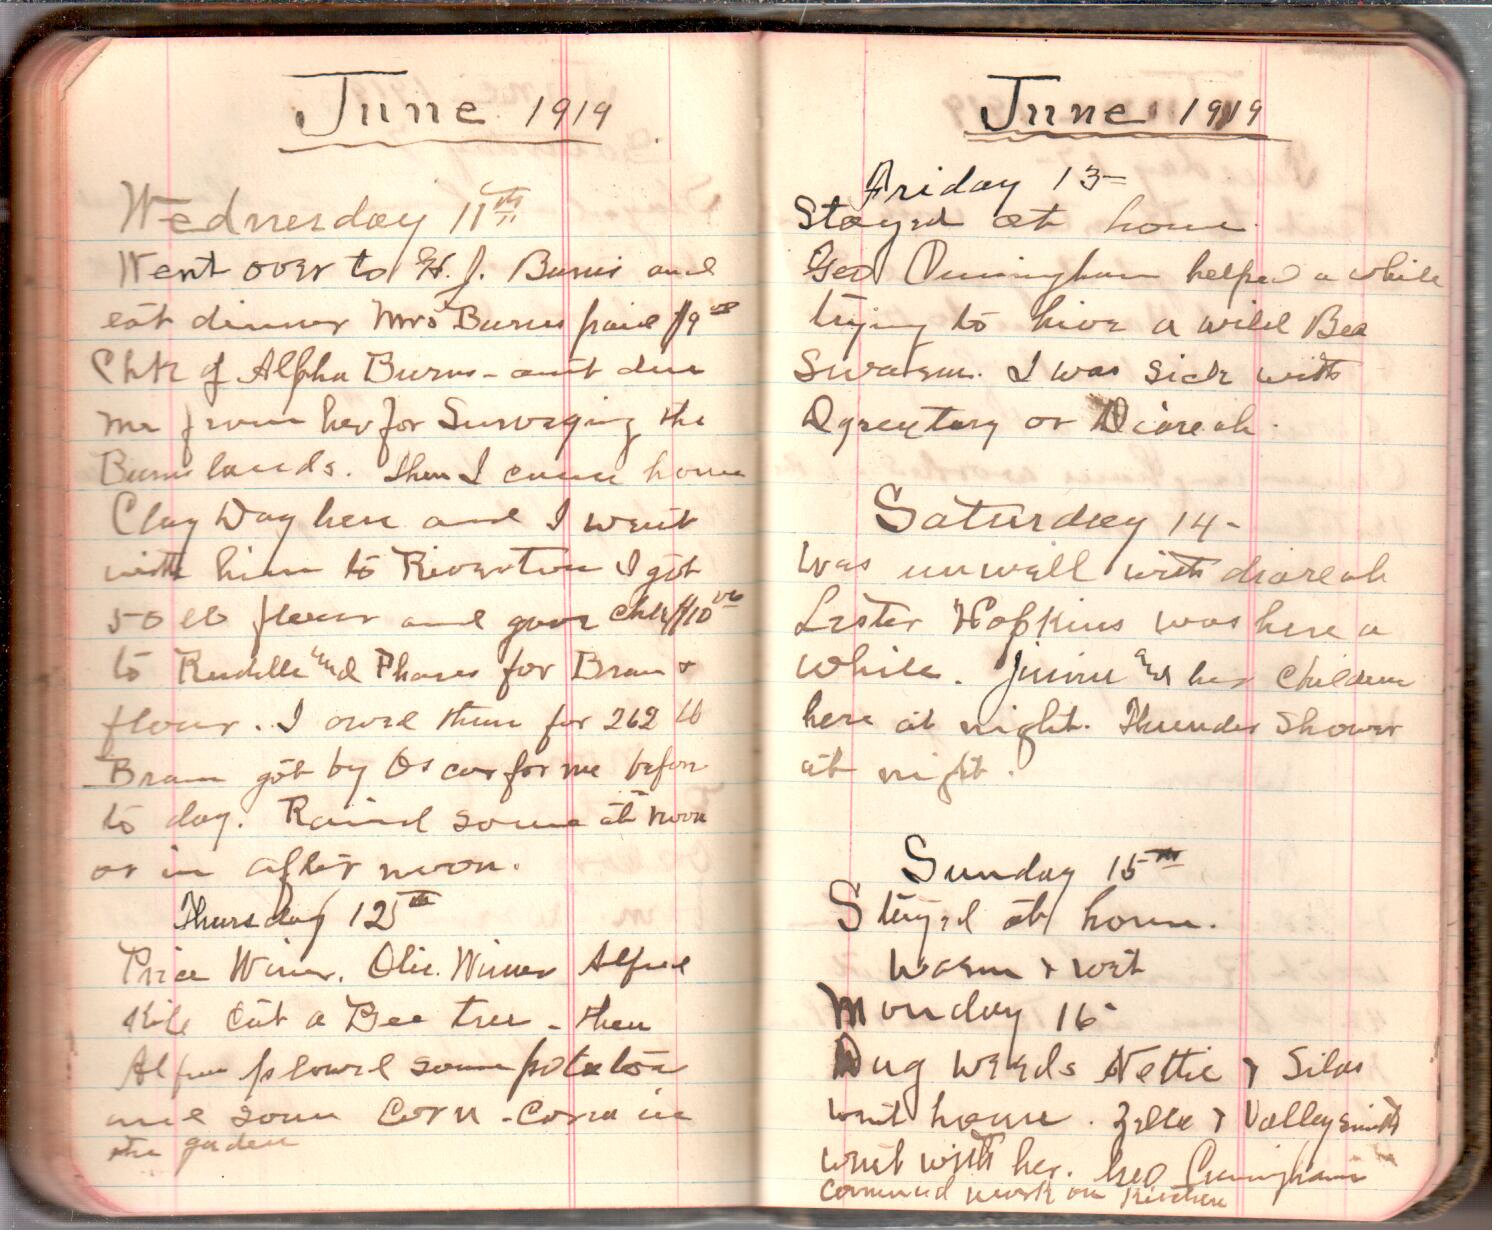 June 1919
Wednesday 11th
Went over to H. J. Burns and
eat dinner Mrs Burns paid $9
Chk of Alpha Burns - amt due
me from her for Surveying the
Burns lands. then I came home
Clay Day here and I went
with him to Riverton I got
50 lb flour and gave Chk $10
to Ruddle and Phares for Bran &
flour. I owed them for 262 lb
Bran got by Oscar for me before
to day. Raind some at noon
or in after noon.
Thursday 12th
Price Wimer. Olie. Wimer Alfred
Kile Cut a Bee tree - then
Alfred plowed some potatoes
and some Corn - Corn in
the garden
June 1919
Friday 13-
Stayed at home.
Geo Cuningham helped a while
trying to hive a wild Bee
Swarm. I was sick with
Dysentary or Diareah.
Saturday 14-
Was unwell with diareah
Lester Hopkins was here a
while. Jinnie and her children
here at night. Thunder Shower
at night.
Sunday 15th
Stayed at home.
Warm & wet
Monday 16-
Dug weeds Nettie & Silas
went home. Zella & Valley Smith
went with her. Geo Cuningham
comenced work on Kitchen